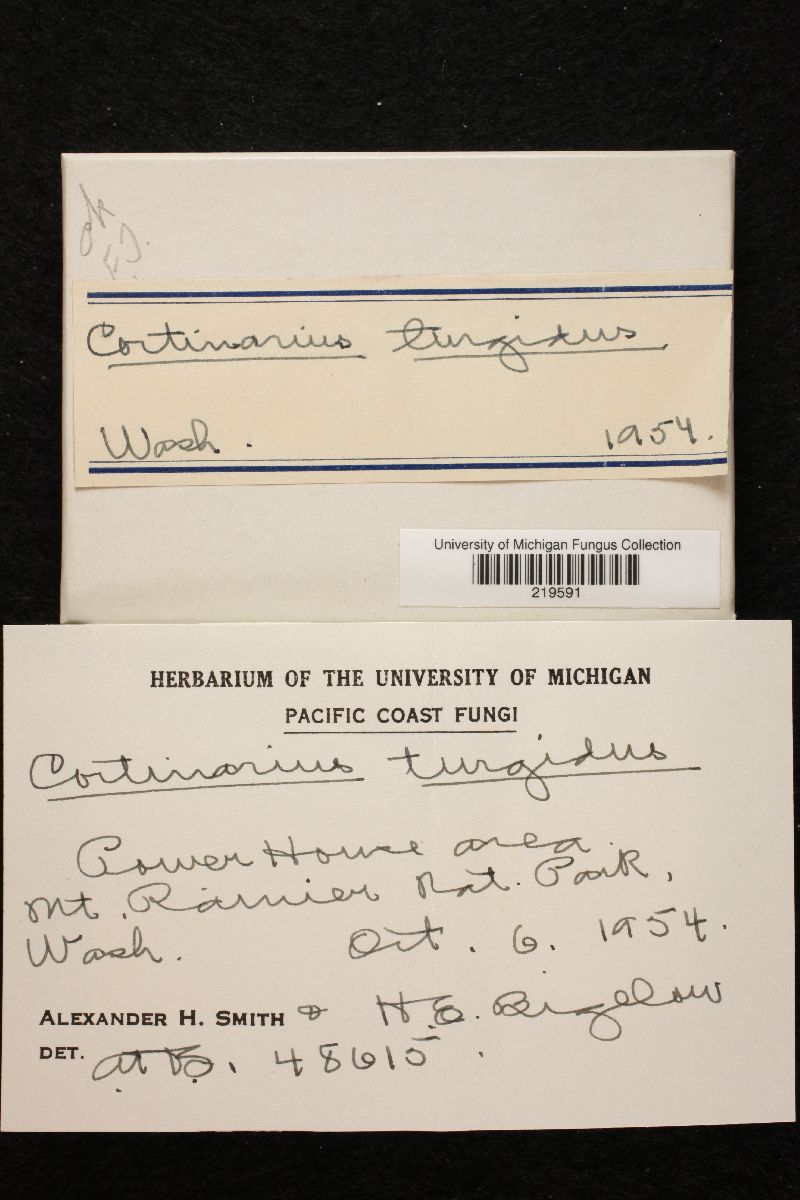 ok
F.J.
Cortinarius turgidus
Wash. 1954.
University of Michigan Fungus Collection
219591
HERBARIUM OF THE UNIVERSITY OF MICHIGAN
PACIFIC COAST FUNGI
Cortinarius turgidus
Power House area
Mt. Rainier Nat. Park,
Wash. Oct. 6. 1954.
ALEXANDER H. SMITH & H.E. Bigelow
DET. 48615.